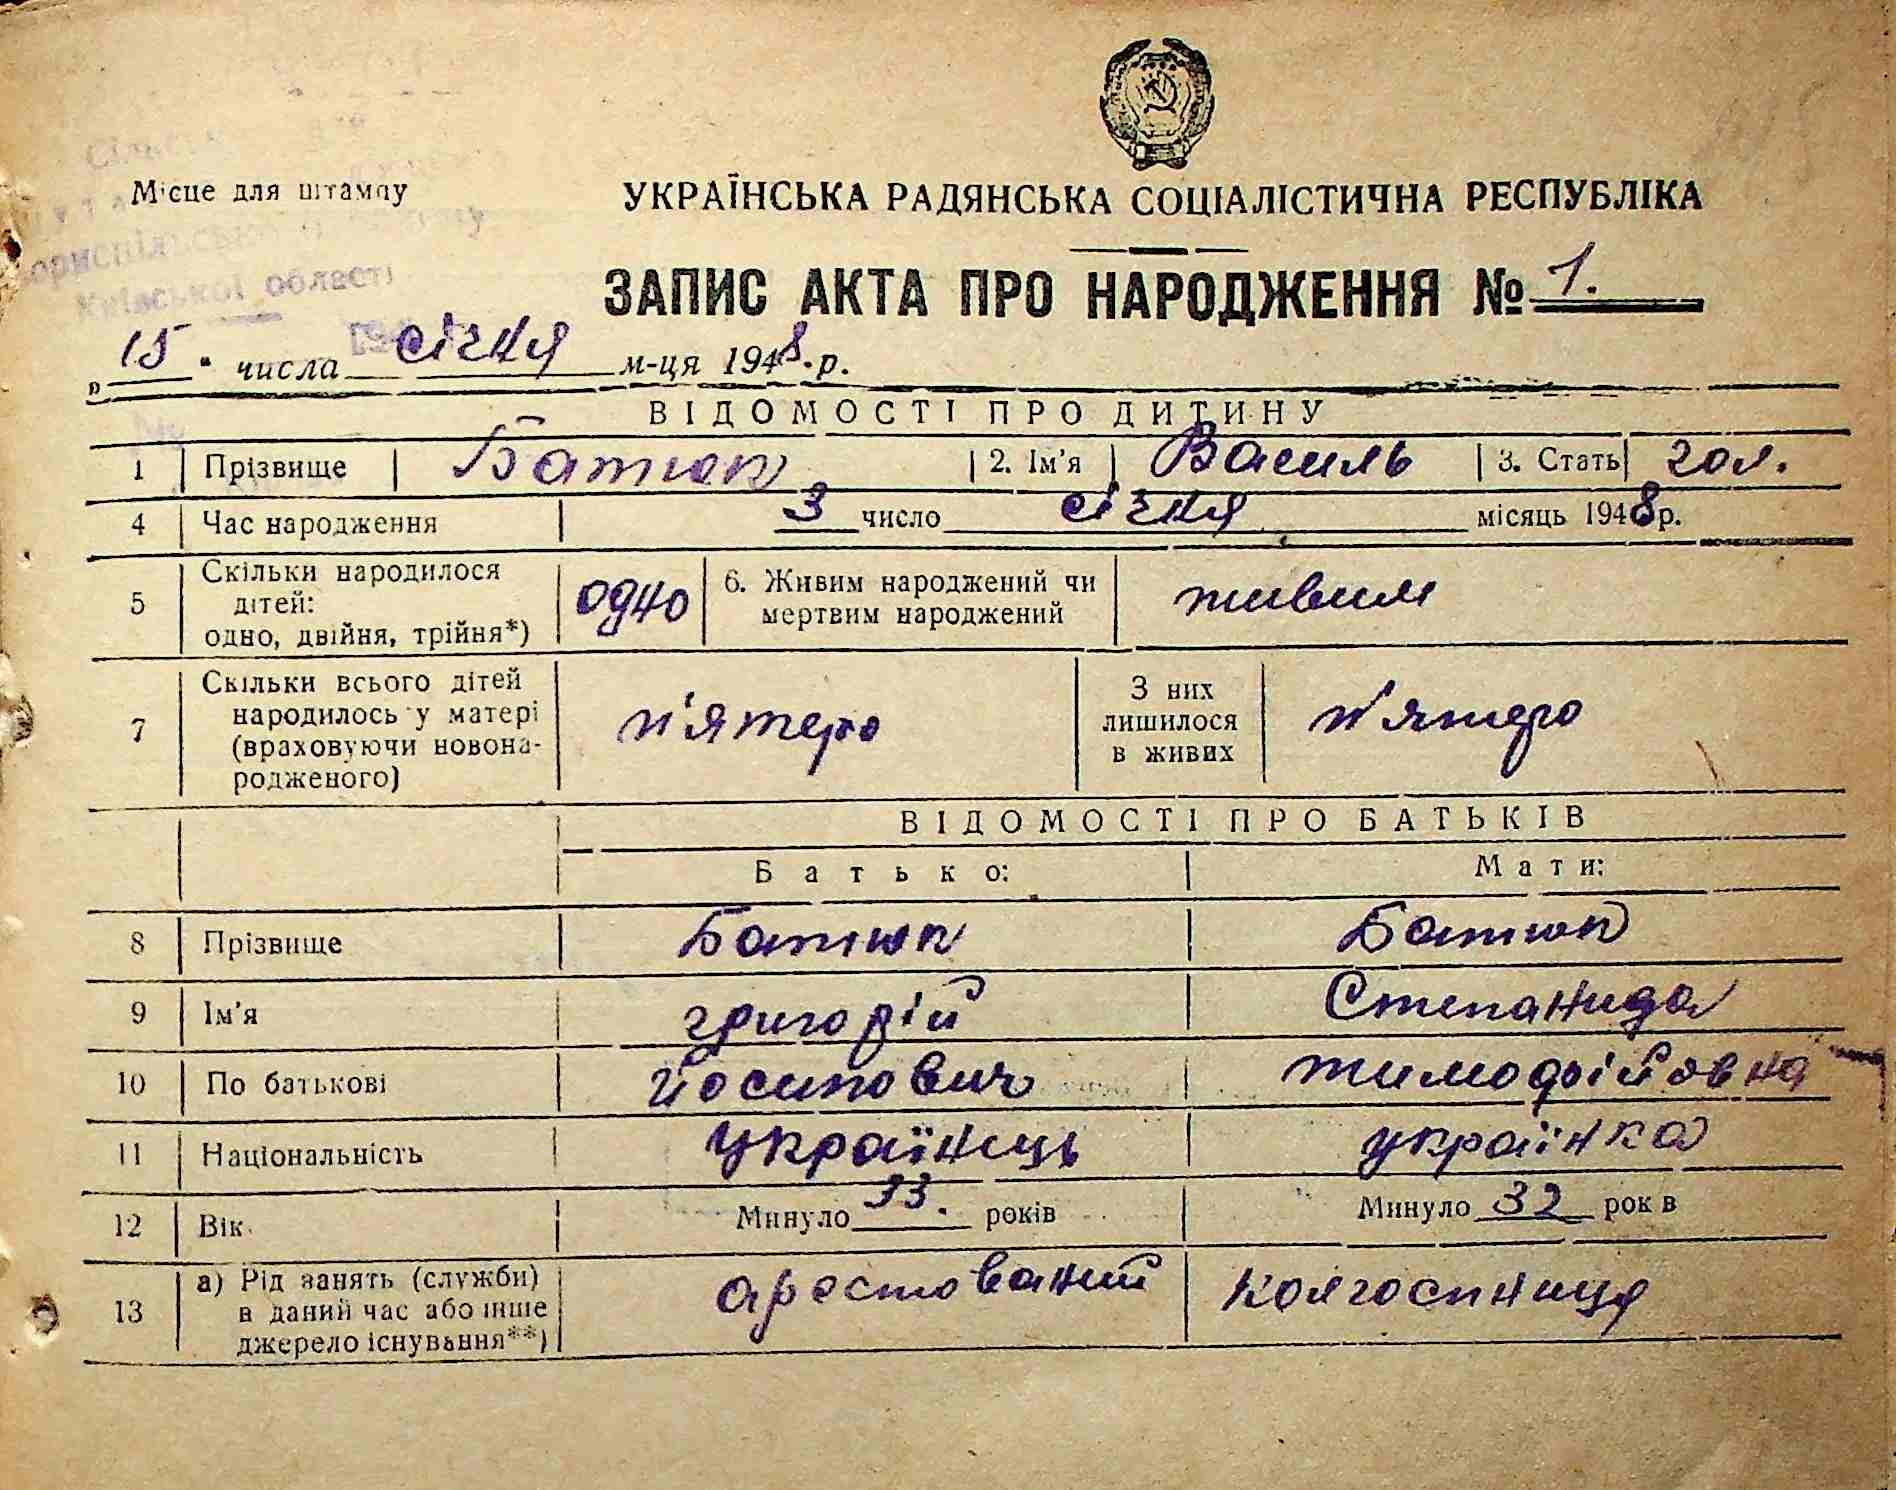 Місце для штампу
Київської області
УКРАЇНСЬКА РАДЯНСЬКА СОЦІАЛІСТИЧНА РЕСПУБЛІКА
ЗАПИС АКТА ПРО НАРОДЖЕННЯ № 1.
„15“ числа січня м-ця 1948.р.
ВІДОМОСТІ ПРО ДИТИНУ
1 Прізвище Батюк 2. Ім'я Василь 3. Стать чол.
4 Час народження 3 число січня місяць 1948 р.
5 Скільки народилося дітей: одно, двійня, трійня*) одно 6. Живим народжений чи мертвим народжений живим
7 Скільки всього дітей народилось у матері (враховуючи новонародженого) п'ятеро З них лишилося в живих п'ятеро
ВІДОМОСТІ ПРО БАТЬКІВ
Батько: Мати:
8 Прізвище Батюк Батюк
9 Ім'я Григорій Степанида
10 По батькові Йосипович Тимофійовна
11 Національність Українець українка
12 Вік Минуло 33. років Минуло 32 років
13 а) Рід занять (служби) в даний час або інше джерело існування**) арестований колгоспниця